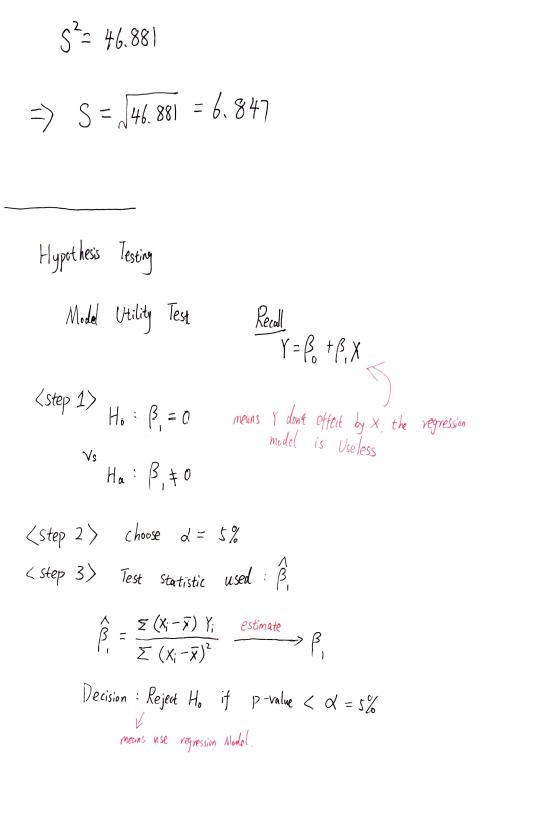 S² = 46.881
⇒ S = √46.881 = 6.847
Hypothesis Testing
Model Utility Test
Recall
Y = β₀ + β₁X
<step 1>
H₀ : β₁ = 0
means Y dont effect by X, the regression
model is Useless
vs
Ha : β₁ ≠ 0
<step 2> choose α = 5%
<step 3> Test statistic used : β̂₁
β̂₁ = Σ (xᵢ - x̄) Yᵢ / Σ (xᵢ - x̄)² estimate → β₁
Decision : Reject H₀ if p-value < α = 5%
means use regression Model.